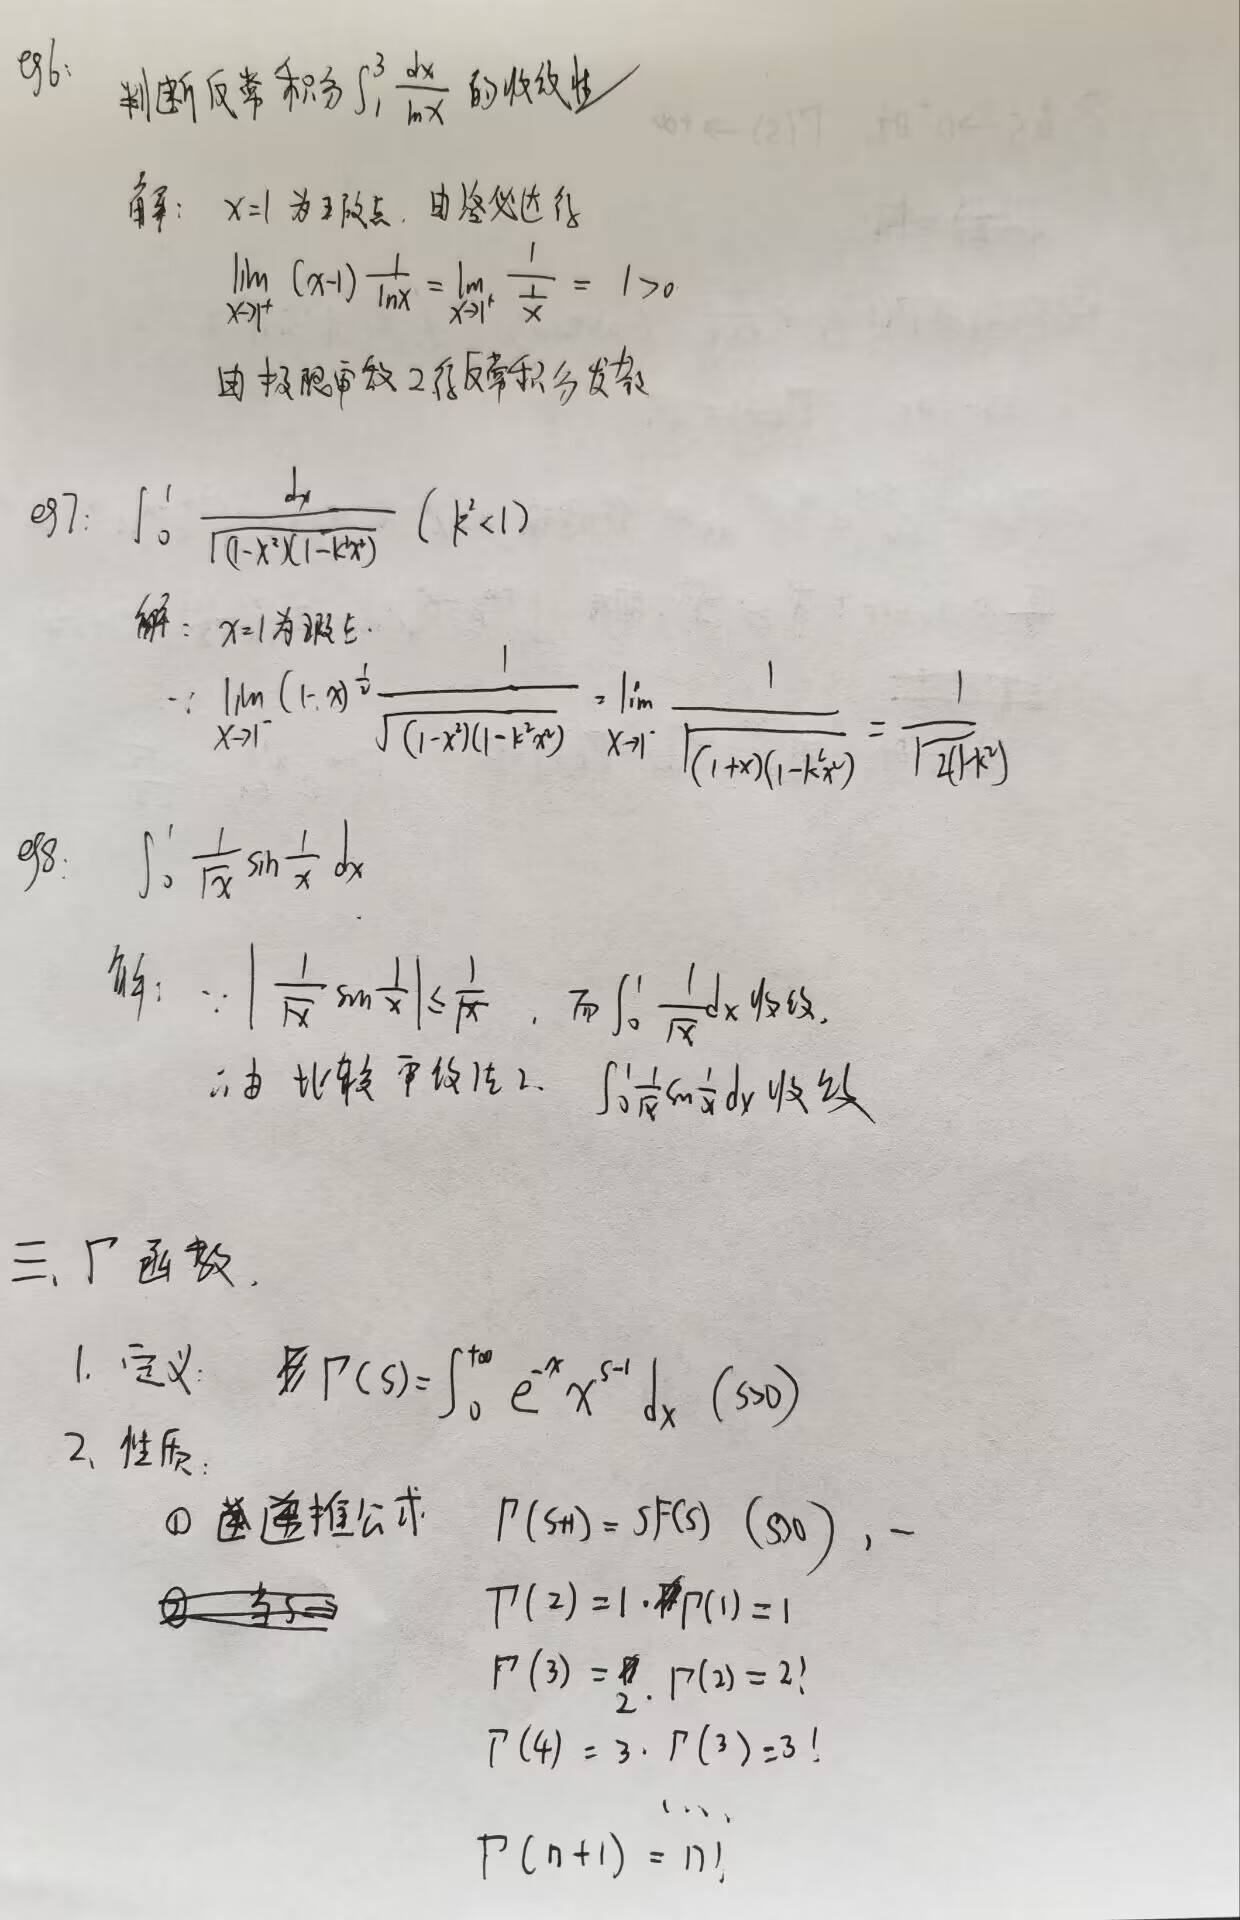 eg6: 判断反常积分 ∫₁³ dx/lnx 的收敛性
解: x=1 为瑕点. 由洛必达得
lim_{x→1⁺} (x-1) 1/lnx = lim_{x→1⁺} 1/(1/x) = 1>0
由极限审敛2得反常积分发散
eg7: ∫₀¹ dx/√((1-x²)(1-k²x²)) (k²<1)
解: x=1为瑕点.
∵ lim_{x→1⁻} (1-x)^{1/2} 1/√((1-x²)(1-k²x²)) = lim_{x→1⁻} 1/√((1+x)(1-k²x²)) = 1/√(2(1-k²))
eg8: ∫₀¹ 1/√x sin 1/x dx
解: ∵ |1/√x sin 1/x| ≤ 1/√x , 而 ∫₀¹ 1/√x dx 收敛,
∴由 比较审敛法2. ∫₀¹ 1/√x sin 1/x dx 收敛
三、Γ 函数.
1. 定义: Γ(s)=∫₀^{+∞} e^{-x} x^{s-1} dx (s>0)
2、性质:
① 递推公式 Γ(s+1)=sΓ(s) (s>0), 一
Γ(2)=1·Γ(1)=1
Γ(3)=2·Γ(2)=2!
Γ(4)=3·Γ(3)=3!
....
Γ(n+1)=n!